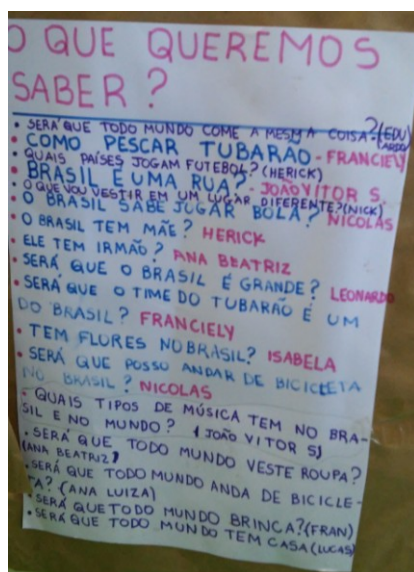 O QUE QUEREMOS
SABER?
• SERÁ QUE TODO MUNDO COME A MESMA COISA?(EDU
ARDO)
• COMO PESCAR TUBARÃO - FRANCIELY
• QUAIS PAÍSES JOGAM FUTEBOL?(HERICK)
• BRASIL É UMA RUA? - JOÃO VITOR S.
• O QUE VOU VESTIR EM UM LUGAR DIFERENTE?(NICK)
• O BRASIL SABE JOGAR BOLA? NICOLAS
• O BRASIL TEM MÃE? HERICK
• ELE TEM IRMÃO? ANA BEATRIZ
• SERÁ QUE O BRASIL É GRANDE? LEONARDO
• SERÁ QUE O TIME DO TUBARÃO É UM
DO BRASIL? FRANCIELY
• TEM FLORES NO BRASIL? ISABELA
• SERÁ QUE POSSO ANDAR DE BICICLETA
NO BRASIL? NICOLAS
• QUAIS TIPOS DE MÚSICA TEM NO BRA-
SIL E NO MUNDO? (JOÃO VITOR S)
• SERÁ QUE TODO MUNDO VESTE ROUPA?
(ANA BEATRIZ)
• SERÁ QUE TODO MUNDO ANDA DE BICICLE-
TA? (ANA LUIZA)
• SERÁ QUE TODO MUNDO BRINCA?(FRAN)
• SERÁ QUE TODO MUNDO TEM CASA(LUCAS)